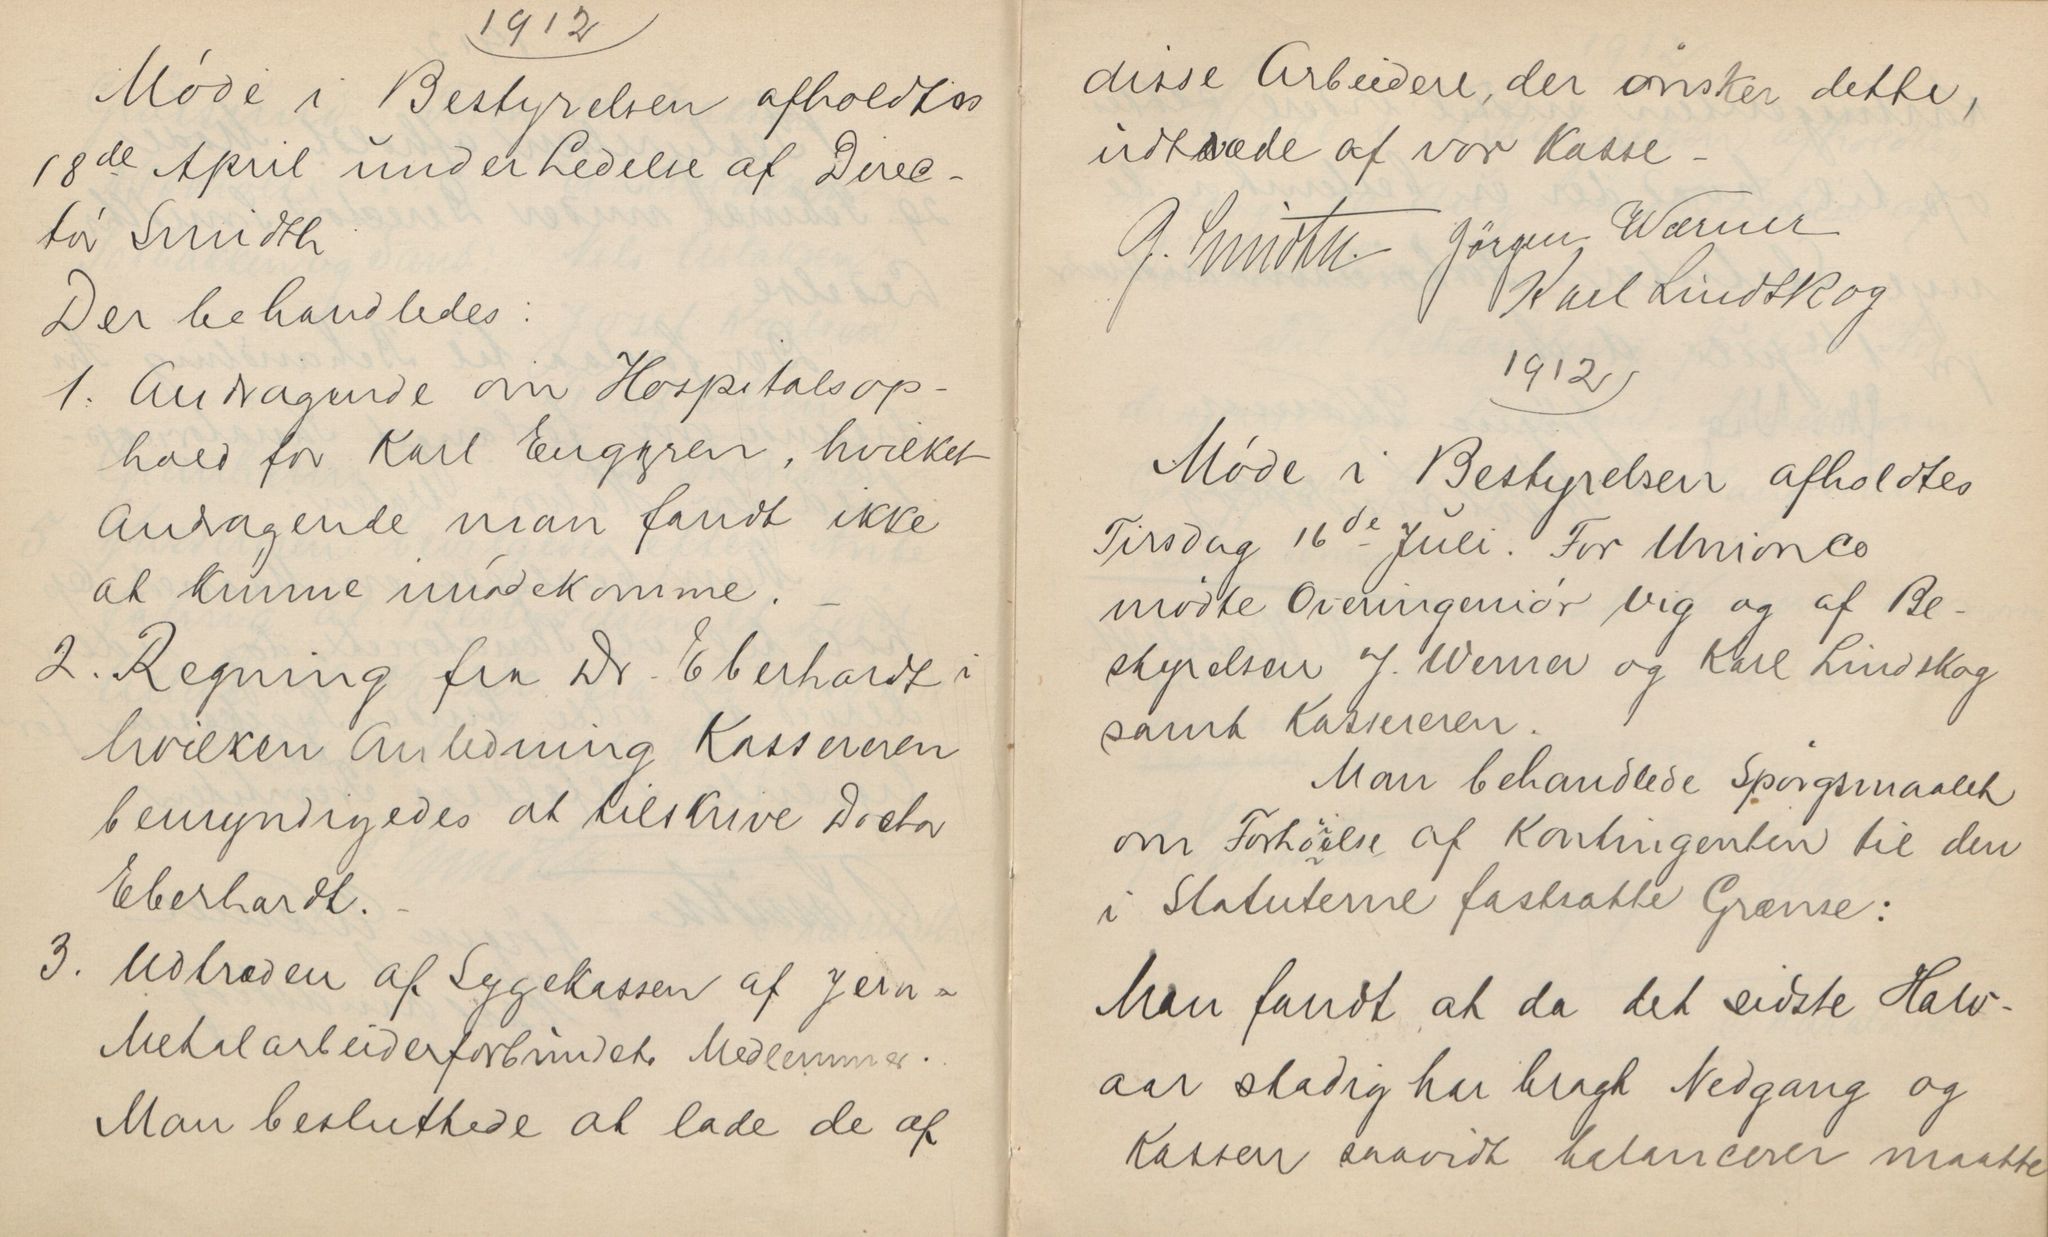 1912
Møde i Bestyrelsen afholdtes
18de April under Ledelse af Direc-
tør Smidth
Der behandledes:
1. Andragende om Hospitalsop-
hold for Karl Enggren, hvilket
Andragende man fandt ikke
at kunne imødekomme. -
2. Regning fra Dr. Eberhardt i
hvilken Anledning Kassereren
bemyndigedes at tilskrive Doctor
Eberhardt. -
3. Udtræden af Sygekassen af Jern-
Metalarbeiderforbundets Medlemmer.
Man besluttede at lade de af
disse Arbeidere, der ønsker dette,
udtræde af vor Kasse -
G. Smidth. Jörgen Wærner
Karl Lindskog
1912
Møde i Bestyrelsen afholdtes
Tirsdag 16de Juli. For Union Co
mødte Overingeniør Vig og af Be-
styrelsen J. Werner og Karl Lindskog
samt Kassereren.
Man behandlede Spørgsmaalet
om Forhøielse af Kontingenten til den
i Statuterne fastsatte Grænse:
Man fandt at da det sidste Halv-
aar stadig har bragt Nedgang og
Kassen saavidt balancerer maatte